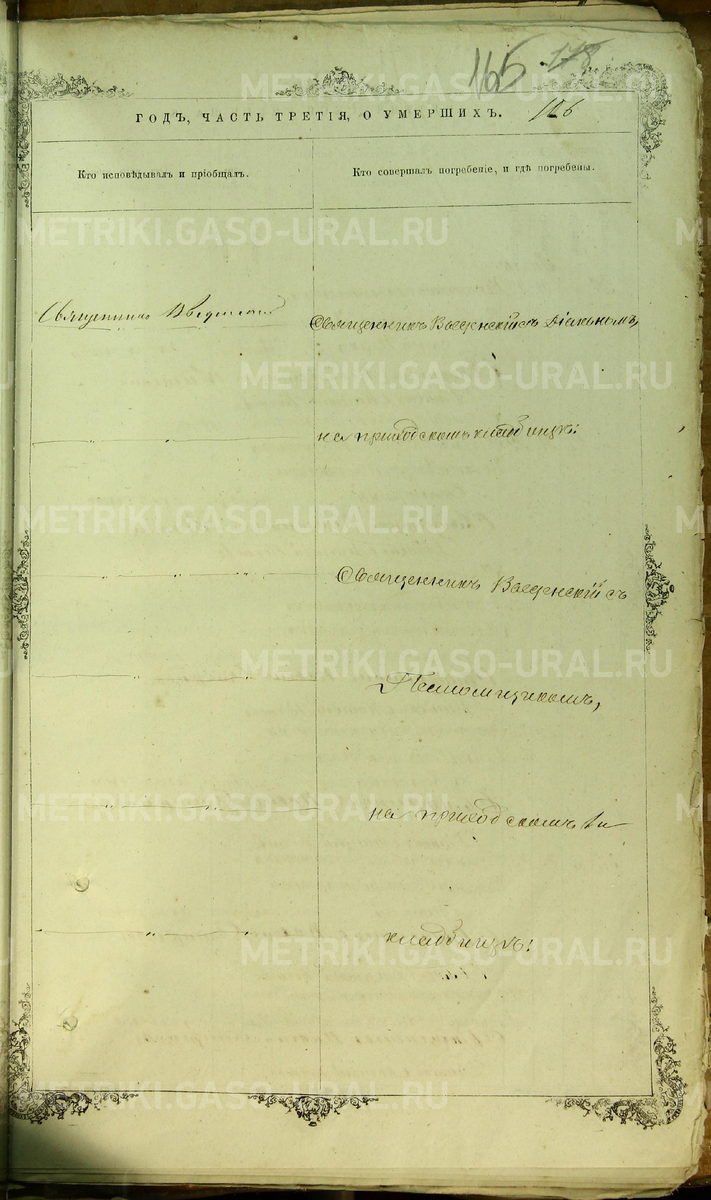 165 178
ГОДЪ, ЧАСТЬ ТРЕТІЯ, О УМЕРШИХЪ. 
Кто исповѣдывалъ и пріобщалъ.
Кто совершалъ погребеніе, и гдѣ погребены.
Священникъ Введенскій
Священникъ Введенскій съ Діакономъ,
на приходскомъ кладбищѣ.
Священникъ Введенскій съ
на приходскомъ
кладбищѣ.
METRIKI.GASO-URAL.RU